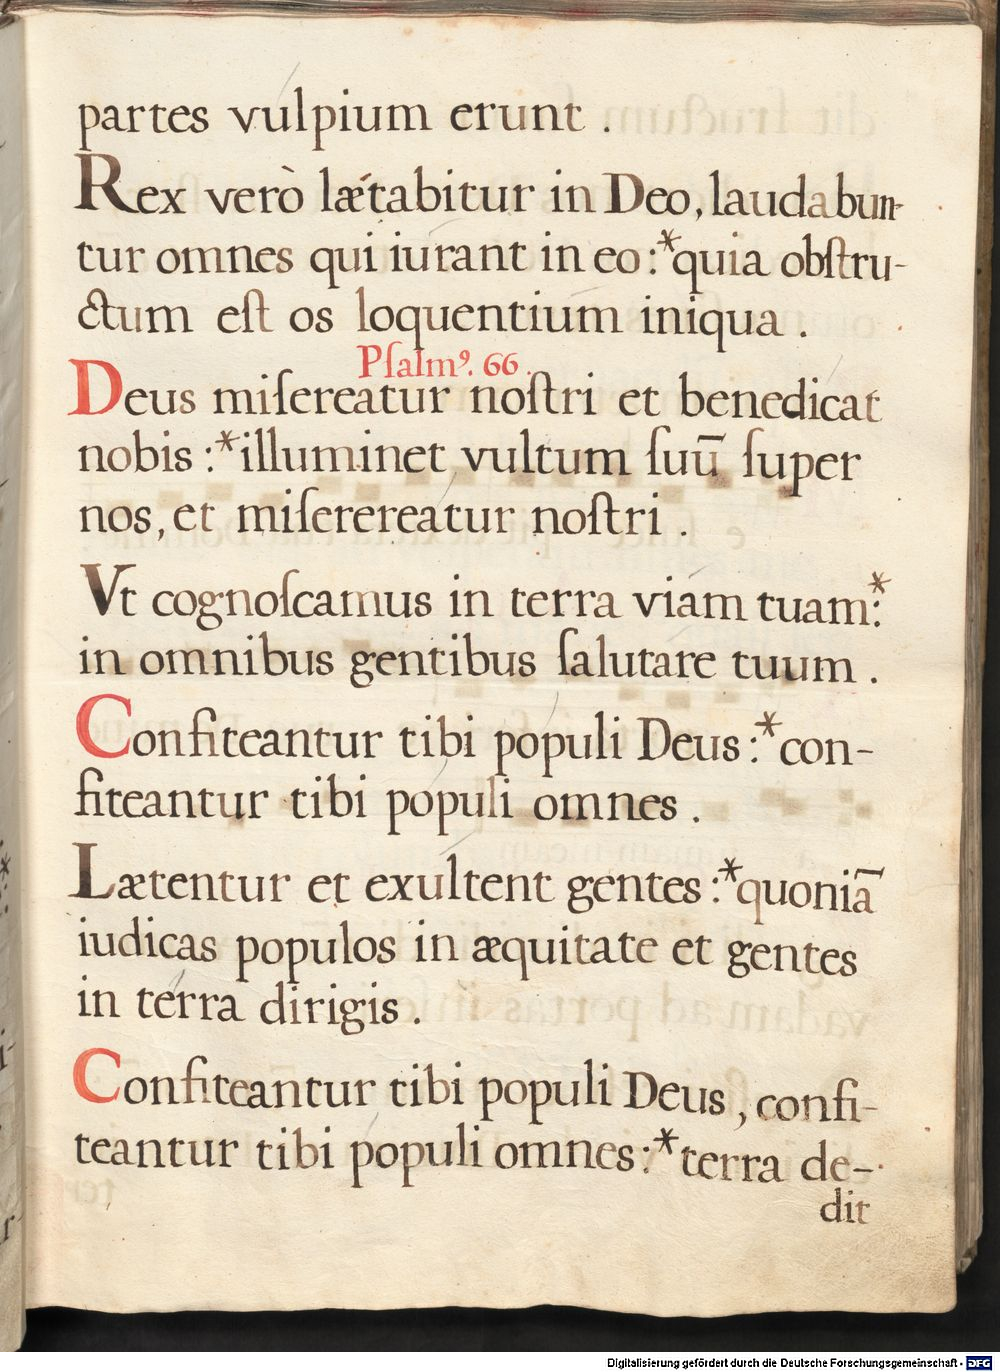 partes vulpium erunt .
Rex verò lǽtabitur in Deo, laudabun-
tur omnes qui iurant in eo :*quia obſtru-
ctum eſt os loquentium iniqua .
Pſalmꝰ. 66.
Deus miſereatur noſtri et benedicat
nobis :*illuminet vultum ſuū ſuper
nos, et miſerereatur noſtri .
Vt cognoſcamus in terra viam tuam:*
in omnibus gentibus ſalutare tuum .
Confiteantur tibi populi Deus :*con-
fiteantur tibi populi omnes .
Lætentur et exultent gentes :*quoniā
iudicas populos in æquitate et gentes
in terra dirigis .
Confiteantur tibi populi Deus, confi-
teantur tibi populi omnes :*terra de-
dit
Digitalisierung gefördert durch die Deutsche Forschungsgemeinschaft - DFG